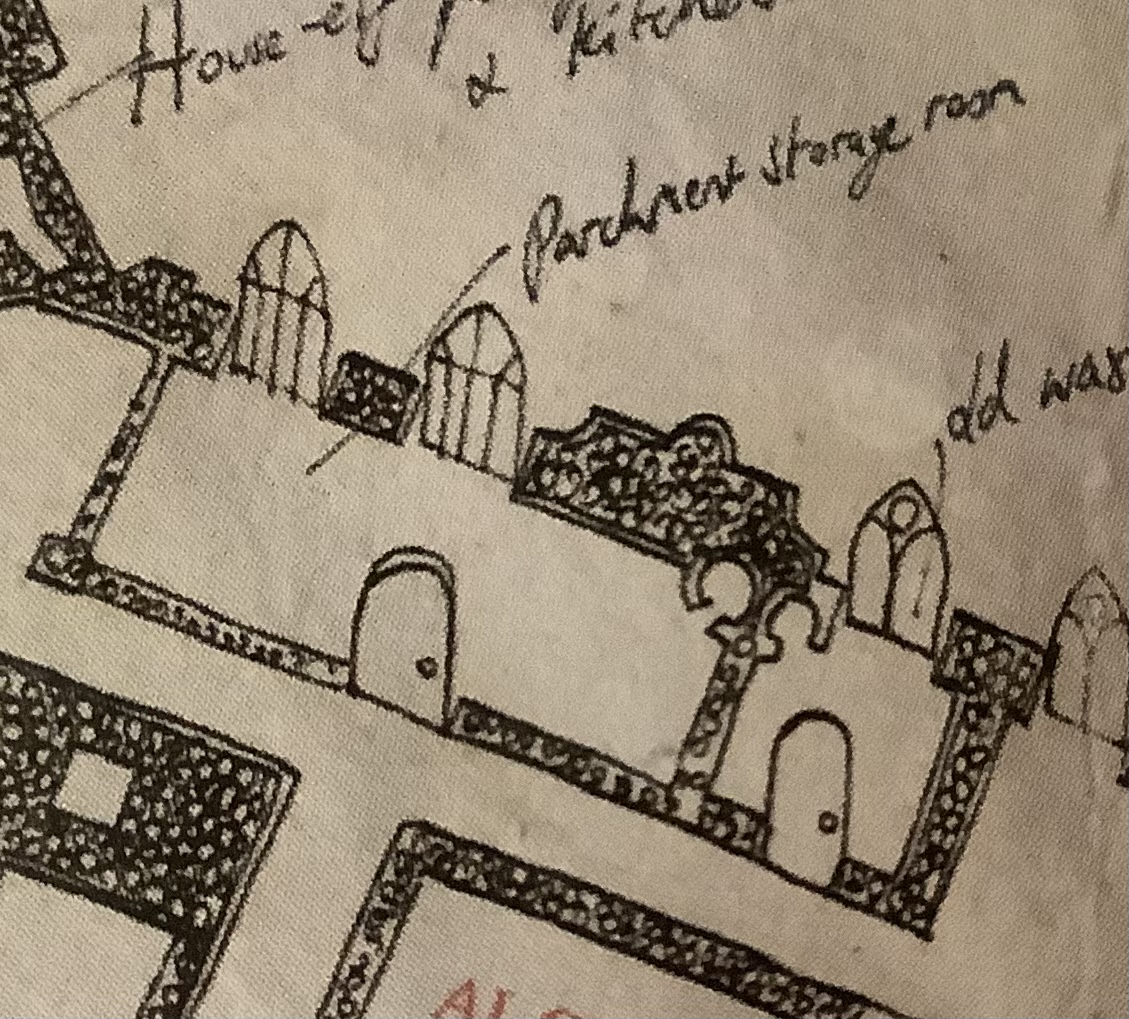 House of
& kitchen
Parchment storage room
old was